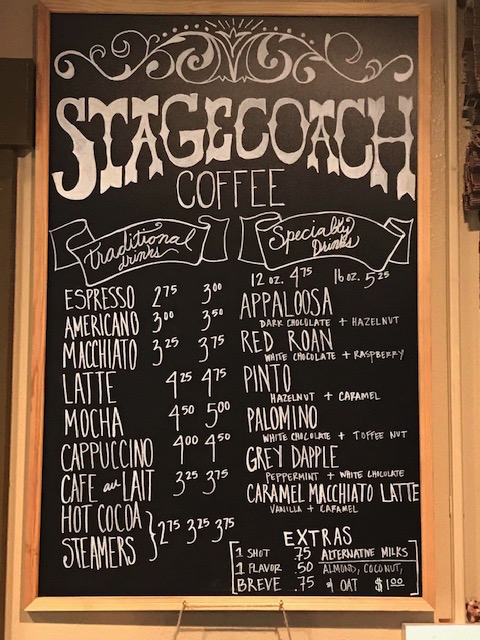 STAGECOACH
COFFEE
Traditional
drinks
ESPRESSO 2.75 3.00
AMERICANO 3.00 3.50
MACCHIATO 3.25 3.75
LATTE 4.25 4.75
MOCHA 4.50 5.00
CAPPUCCINO 4.00 4.50
CAFE au LAIT 3.25 3.75
HOT COCOA
STEAMERS } 2.75 3.25 3.75
Specialty
Drinks
12 oz. 4.75 16 oz. 5.25
APPALOOSA
DARK CHOCOLATE + HAZELNUT
RED ROAN
WHITE CHOCOLATE + RASPBERRY
PINTO
HAZELNUT + CARAMEL
PALOMINO
WHITE CHOCOLATE + TOFFEE NUT
GREY DAPPLE
PEPPERMINT + WHITE CHOCOLATE
CARAMEL MACCHIATO LATTE
VANILLA + CARAMEL
EXTRAS
1 SHOT .75
1 FLAVOR .50
BREVE .75
ALTERNATIVE MILKS
ALMOND, COCONUT,
& OAT $1.00